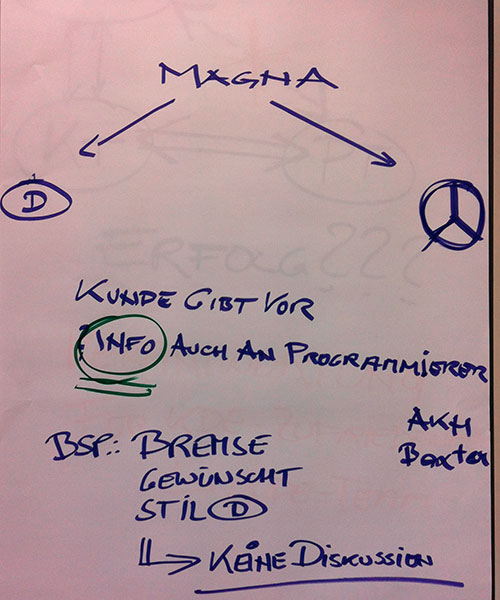 MAGNA
D
ERFOLG???
KUNDE GIBT VOR
INFO AUCH AN PROGRAMMIERER
AKH
Baxter
BSP.: BREMSE
GEWÜNSCHT
STIL D
KEINE DISKUSSION